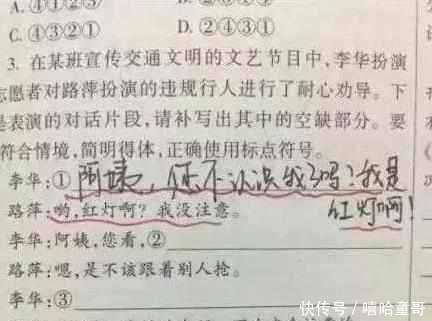 A.④①②③
C.④③②①
D.②④③①
3. 在某班宣传交通文明的文艺节目中,李华扮演
志愿者对路萍扮演的违规行人进行了耐心劝导。下
是表演的对话片段,请补写出其中的空缺部分。要
符合情境,简明得体,正确使用标点符号。
李华:① 阿姨,您不认识我了吗?我是
路萍:哟,红灯啊?我没注意。 红灯啊!
李华:阿姨,您看,②
路萍:嗯,是不该跟着别人抢。
李华:③
快传号/嘻哈童哥